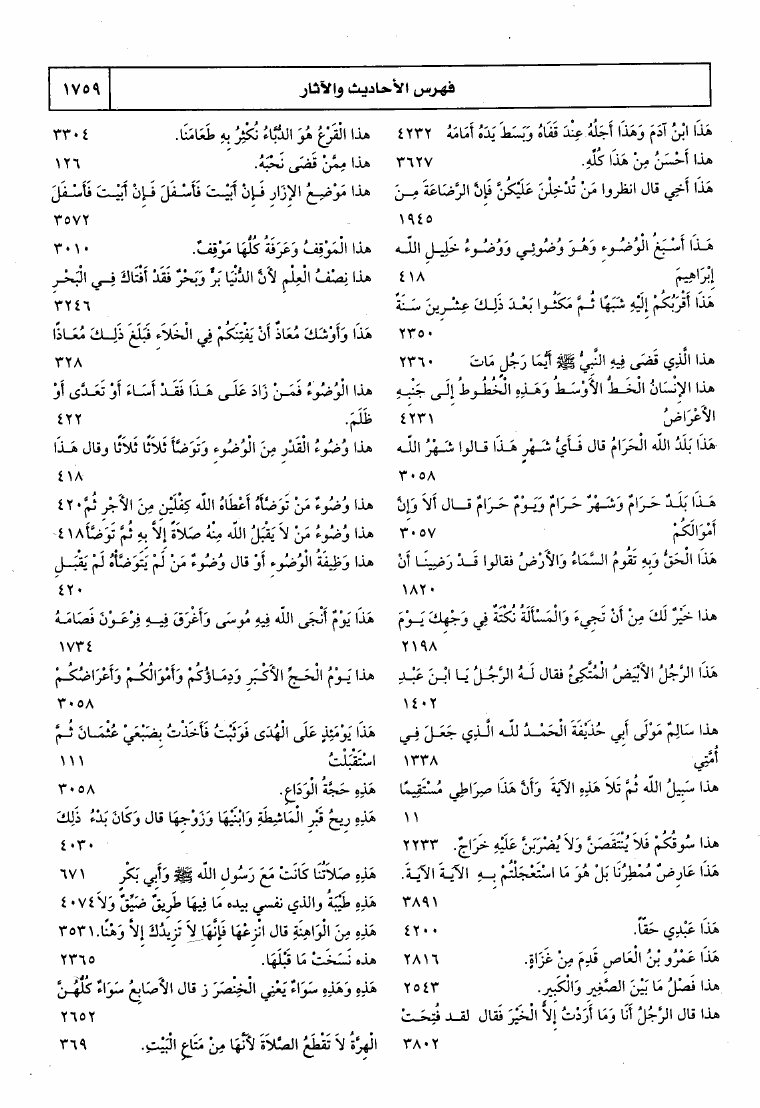 فهرس الأحاديث والآثار ١٧٥٩
هَذَا ابْنُ آدَمَ وَهَذَا أَجَلُهُ عِنْدَ قَفَاهُ وَبَسَطَ يَدَهُ أَمَامَهُ ٤٢٣٢
هذا أَحْسَنُ مِنْ هَذَا كُلِّهِ. ٣٦٢٧
هَذَا أَخِي قال انظروا مَنْ تُدْخِلْنَ عَلَيْكُنَّ فَإِنَّ الرَّضَاعَةَ مِنَ
١٩٤٥
هَذَا أَسْبَغُ الْوُضُوءِ وَهُوَ وَضُوئِي وَوُضُوءُ خَلِيلِ اللّه
إِبْرَاهِيمَ ٤١٨
هَذَا أَقْرَبُكُمْ إِلَيْهِ شَبَهًا ثُمَّ مَكَثُوا بَعْدَ ذَلِكَ عِشْرِينَ سَنَةً
٢٣٥٠
هذا الَّذِي قَضَى فِيهِ النَّبِيُّ ﷺ أَيُّمَا رَجُلٍ مَاتَ ٢٣٦٠
هذا الإِنْسَانُ الْخَطُّ الأَوْسَطُ وَهَذِهِ الْخُطُوطُ إِلَى جَنْبِهِ
الأَعْرَاضُ ٤٢٣١
هَذَا بَلَدُ اللّه الْحَرَامُ قال فَأَيُّ شَهْرٍ هَذَا قالوا شَهْرُ اللّه
٣٠٥٨
هَذَا بَلَدٌ حَرَامٌ وَشَهْرٌ حَرَامٌ وَيَوْمٌ حَرَامٌ قال أَلاَ وَإِنَّ
أَمْوَالَكُمْ ٣٠٥٧
هَذَا الْحَقُّ وَبِهِ تَقُومُ السَّمَاءُ وَالأَرْضُ فقالوا قَدْ رَضِينَا أَنْ
١٨٢٠
هذا خَيْرٌ لَكَ مِنْ أَنْ تَجِيءَ وَالْمَسْأَلَةُ نُكْتَةٌ فِي وَجْهِكَ يَوْمَ
٢١٩٨
هَذَا الرَّجُلُ الأَبْيَضُ الْمُتَّكِئُ فقال لَهُ الرَّجُلُ يَا ابْنَ عَبْدِ
١٤٠٢
هذا سَالِمٌ مَوْلَى أَبِي حُذَيْفَةَ الْحَمْدُ للّه الَّذِي جَعَلَ فِي
أُمَّتِي ١٣٣٨
هذا سَبِيلُ اللّه ثُمَّ تَلاَ هَذِهِ الآيَةَ وَأَنَّ هَذَا صِرَاطِي مُسْتَقِيمًا
١١
هذا سُوقُكُمْ فَلاَ يُنْتَقَصَنَّ وَلاَ يُضْرَبَنَّ عَلَيْهِ خَرَاجٌ. ٢٢٣٣
هَذَا عَارِضٌ مُمْطِرُنَا بَلْ هُوَ مَا اسْتَعْجَلْتُمْ بِهِ الآيَةَ الآيَةَ.
٣٨٩١
هَذَا عَبْدِي حَقًّا. ٤٢٠٠
هَذَا عَمْرُو بْنُ الْعَاصِ قَدِمَ مِنْ غَزَاةٍ. ٢٨١٦
هذا فَصْلُ مَا بَيْنَ الصَّغِيرِ وَالْكَبِيرِ. ٢٥٤٣
هذا قال الرَّجُلُ أَنَا وَمَا أَرَدْتُ إِلاَّ الْخَيْرَ فَقال لقد فُتِحَتْ
٣٨٠٢
هذا الْقَرْعُ هُوَ الدُّبَّاءُ نُكْثِرُ بِهِ طَعَامَنَا. ٣٣٠٤
هذا مِمَّنْ قَضَى نَحْبَهُ. ١٢٦
هذا مَوْضِعُ الإِزَارِ فَإِنْ أَبَيْتَ فَأَسْفَلَ فَإِنْ أَبَيْتَ فَأَسْفَلَ
٣٥٧٢
هذا الْمَوْقِفُ وَعَرَفَةُ كُلُّهَا مَوْقِفٌ. ٣٠١٠
هذا نِصْفُ الْعِلْمِ لأَنَّ الدُّنْيَا بَرٌّ وَبَحْرٌ فَقَدْ أَفْتَاكَ فِي الْبَحْرِ
٣٢٤٦
هَذَا وَأَوْشَكَ مُعَاذٌ أَنْ يَفْتِنَكُمْ فِي الْخَلاَءِ فَبَلَغَ ذَلِكَ مُعَاذًا
٣٢٨
هذا الْوُضُوءُ فَمَنْ زَادَ عَلَى هَذَا فَقَدْ أَسَاءَ أَوْ تَعَدَّى أَوْ
ظَلَمَ. ٤٢٢
هذا وُضُوءُ الْقَدْرِ مِنَ الْوُضُوءِ وَتَوَضَّأَ ثَلاَثًا ثَلاَثًا وقال هَذَا
٤١٨
هذا وُضُوءٌ مَنْ تَوَضَّأَهُ أَعْطَاهُ اللّه كِفْلَيْنِ مِنَ الأَجْرِ ثُمَّ ٤٢٠
هذا وُضُوءُ مَنْ لاَ يَقْبَلُ اللّه مِنْهُ صَلاَةً إِلاَّ بِهِ ثُمَّ تَوَضَّأَ ٤١٨
هذا وَظِيفَةُ الْوُضُوءِ أَوْ قال وُضُوءٌ مَنْ لَمْ يَتَوَضَّأْهُ لَمْ يَقْبَلِ
٤٢٠
هَذَا يَوْمٌ أَنْجَى اللّه فِيهِ مُوسَى وَأَغْرَقَ فِيهِ فِرْعَوْنَ فَصَامَهُ
١٧٣٤
هذا يَوْمُ الْحَجِّ الأَكْبَرِ وَدِمَاؤُكُمْ وَأَمْوَالُكُمْ وَأَعْرَاضُكُمْ
٣٠٥٨
هَذَا يَوْمَئِذٍ عَلَى الْهُدَى فَوَثَبْتُ فَأَخَذْتُ بِضَبْعَيْ عُثْمَانَ ثُمَّ
اسْتَقْبَلْتُ ١١١
هَذِهِ حَجَّةُ الْوَدَاعِ. ٣٠٥٨
هَذِهِ رِيحُ قَبْرِ الْمَاشِطَةِ وَابْنَيْهَا وَزَوْجِهَا قال وَكَانَ بَدْءُ ذَلِكَ
٤٠٣٠
هَذِهِ صَلاَتُنَا كَانَتْ مَعَ رَسُولِ اللّه ﷺ وَأَبِي بَكْرٍ ٦٧١
هَذِهِ طَيْبَةُ والذي نفسي بيده مَا فِيهَا طَرِيقٌ ضَيِّقٌ وَلاَ ٤٠٧٤
هَذِهِ مِنَ الْوَاهِنَةِ قال انْزِعْهَا فَإِنَّهَا لاَ تَزِيدُكَ إِلاَّ وَهْنًا. ٣٥٣١
هذه نَسَخَتْ مَا قَبْلَهَا. ٢٣٦٥
هَذِهِ وَهَذِهِ سَوَاءٌ يَعْنِي الْخِنْصَرَ ز قال الأَصَابِعُ سَوَاءٌ كُلُّهُنَّ
٢٦٥٢
الْهِرَّةُ لاَ تَقْطَعُ الصَّلاَةَ لأَنَّهَا مِنْ مَتَاعِ الْبَيْتِ. ٣٦٩